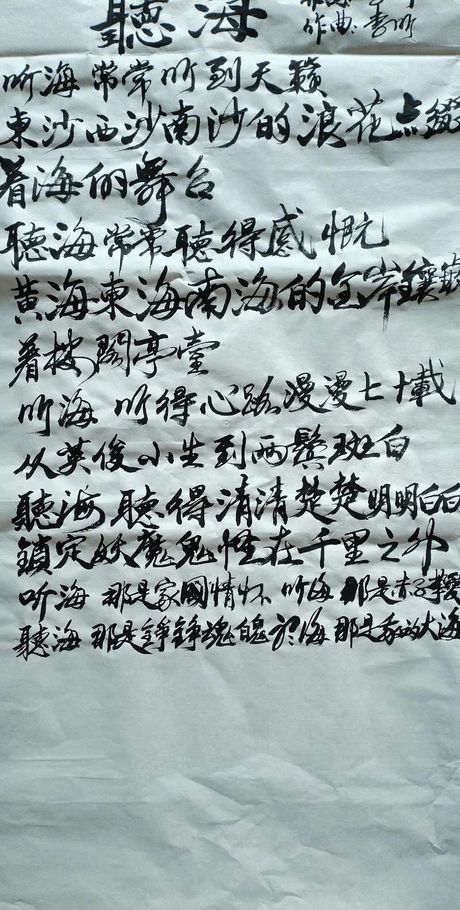 聽海
作曲：李昕
听海常常听到天籟
東沙西沙南沙的浪花点綴
着海的舞台
聽海常常聽得感慨
黄海東海南海的金岸鑲嵌
着楼閣亭臺
听海 听得心路漫漫七十載
从英俊小生到两鬓斑白
聽海 聽得清清楚楚明明白白
鎖定妖魔鬼怪在千里之外
听海 那是家國情怀 听海 那是赤子
聽海 那是錚錚魂魄 於海 那是我的大海